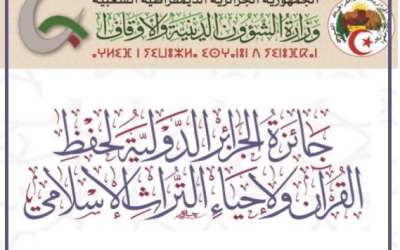 الجمهورية الجزائرية الديمقراطية الشعبية
وزارة الشؤون الدينية والأوقاف
جائزة الجزائر الدولية لحفظ
القرآن ولإحياء التراث الإسلامي